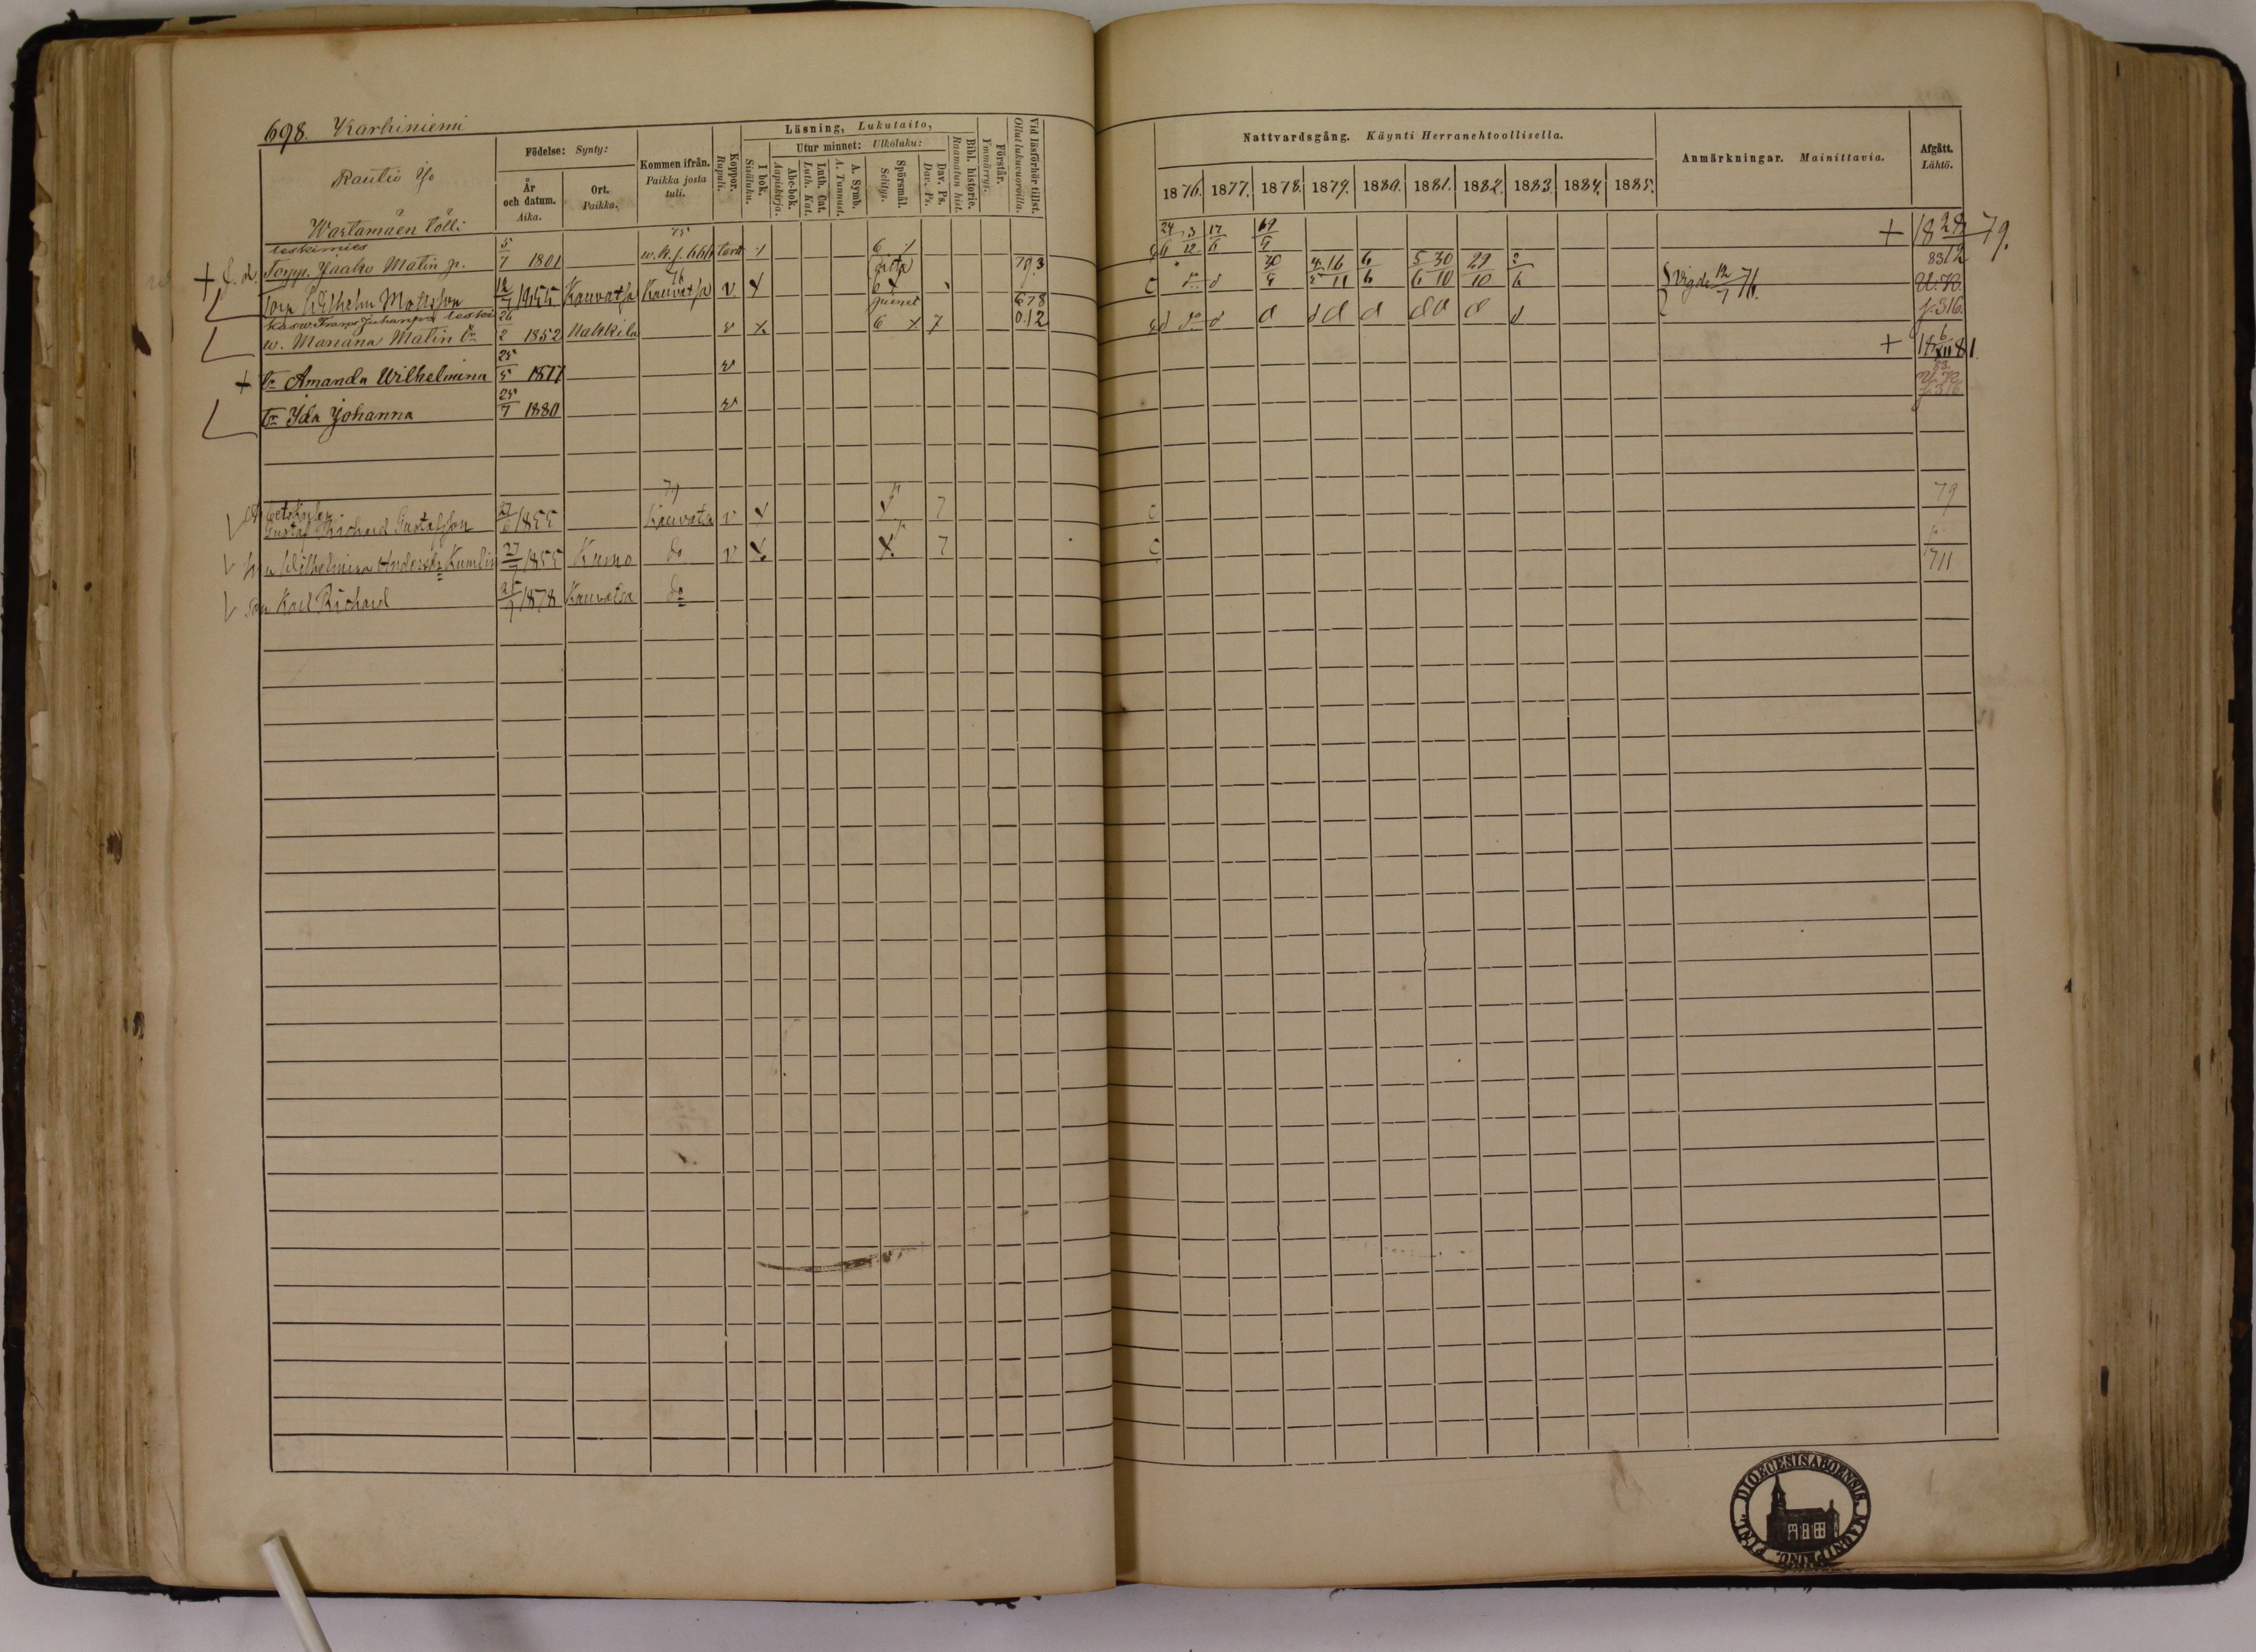 698. Karhiniemi
Rautio Yo
Födelse: Synty:
År och datum. Aika.
Ort. Paikka.
Kommen ifrån. Paikka josta tuli.
Koppor. Rupuli.
Läsning, Lukutaito,
I bok. Sisäluku.
Utur minnet: Ulkoluku:
Abc-bok. Aapiskirja.
Luth. Cat. Luth. Kat.
A. Symb. A. Tunnust.
Spörsmål. Selitys.
Dav. Ps. Dav. Ps.
Bibl. historie. Raamatun hist.
Förstår. Ymmärrys.
Vid läsförhör tillst. Ollut lukuvuoroilla.
Nattvardsgång. Käynti Herranehtoollisella.
1876. 1877. 1878. 1879. 1880. 1881. 1882. 1883. 1884. 1885.
Anmärkningar. Mainittavia.
Afgått. Lähtö.
Wartamäen tölli
leskimies
+ Torpp. Jaako Matin p. 5/7 1801 75 tará 6 79.3 24/6 3/12 17/6 + 18 29/12 79.
Torp Wilhelm Mattsson 12/7 1855 Kauvatsa 76 Kauvatsa v. 6 C 30 6/6 5/6 30/10 29/10 2/6 Vigde 12/7 76. 83 U.K. f. 316.
w. Mariana Matin tr 26/2 1852 Nakkila v 6 7 678 0.12
+ tr Amanda Wilhelmina 25/5 1877 v + 81.
tr Ida Johanna 25/7 1880 v 83. U.K. f. 316
Gustaf Richard Gustafsson 27/6 1855 79 Kauvatsa v 7 C 79
Wilhelmina Andersdr Kumlin 27/7 1855 Kumo do v 7 C 711
son Karl Richard 1878 Kauvatsa do
DIOECESIS ABOENSIS. MAGNI PRINC. FINL.